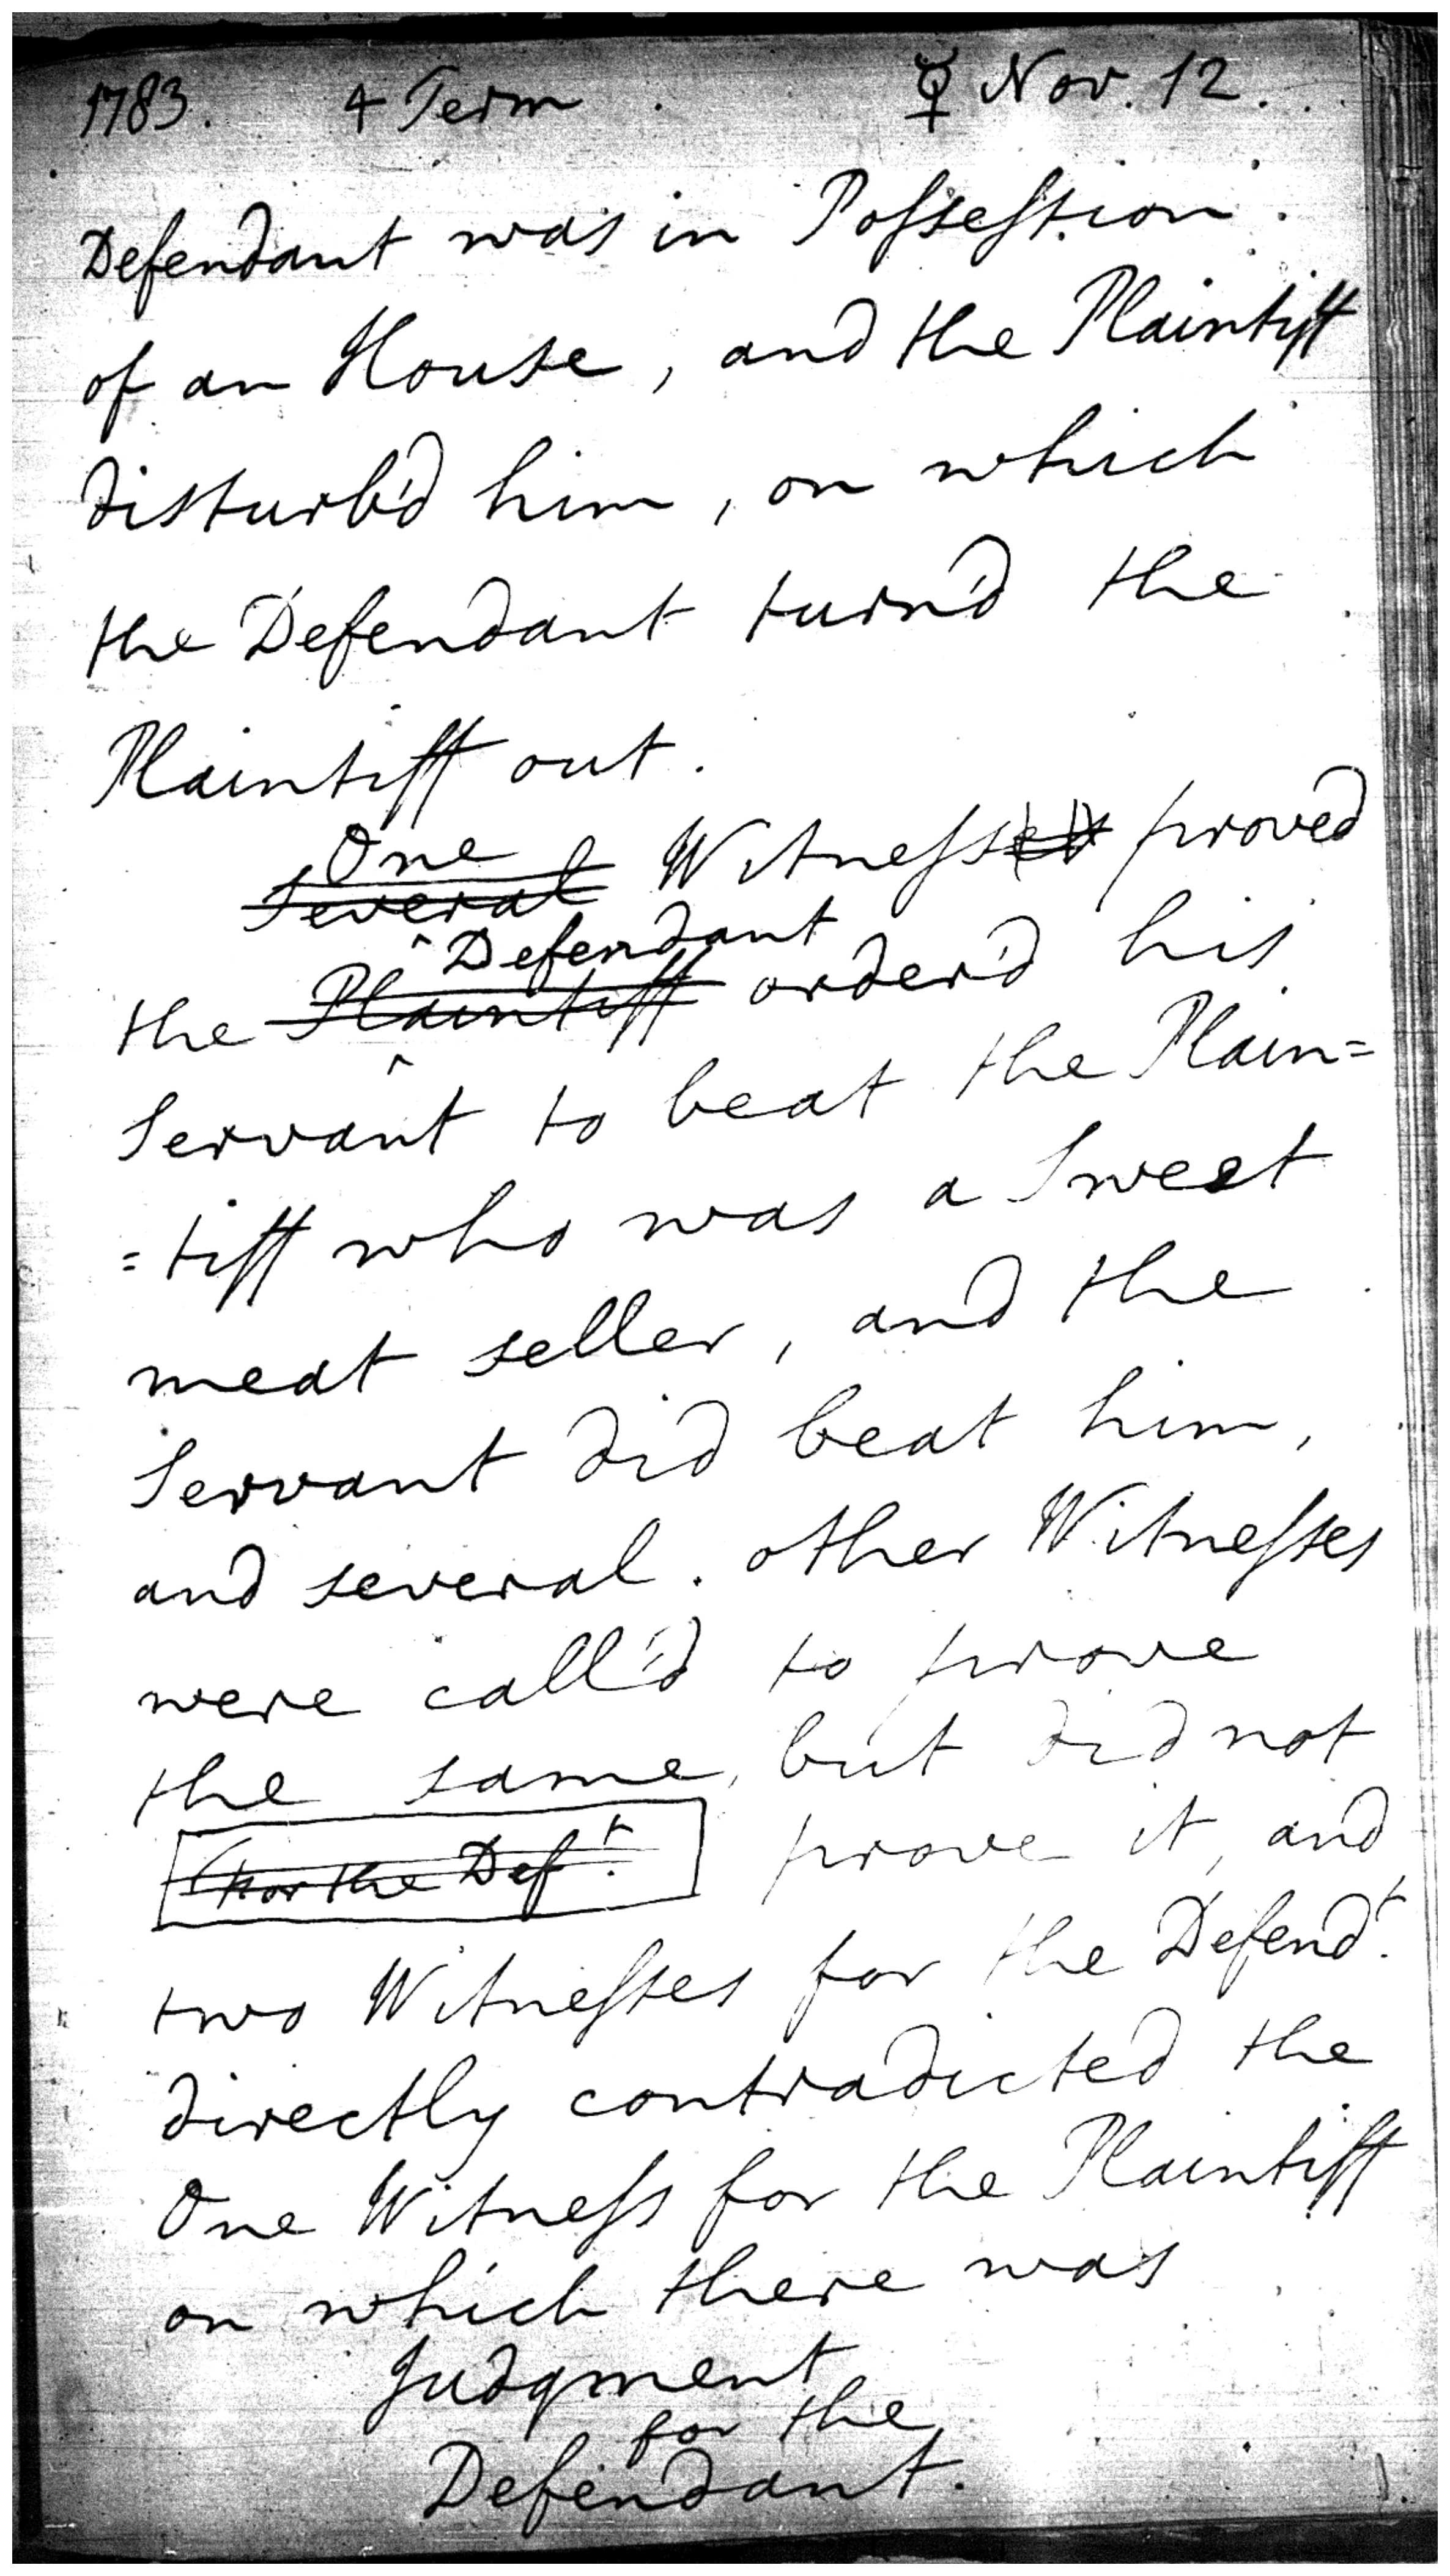 1783. 4 Term. ☿ Nov. 12.
Defendant was in Possession
of an House, and the Plaintiff
disturb'd him, on which
the Defendant turn'd the
Plaintiff out.
One
Several Witnesses proved
Defendant
the Plaintiff order'd his
Servant to beat the Plain=
=tiff who was a Sweet
meat seller, and the
Servant did beat him,
and several other Witnesses
were call'd to prove
the same, but did not
(For the Def.t prove it, and
two Witnesses for the Defend.t
directly contradicted the
One Witness for the Plaintiff
on which there was
Judgment
for the
Defendant.